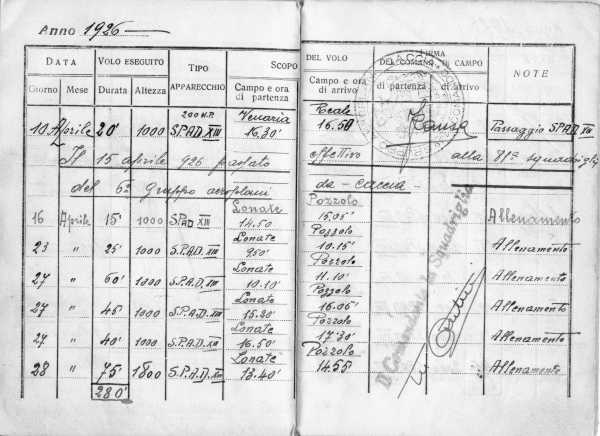 Anno 1926
DATA VOLO ESEGUITO TIPO APPARECCHIO SCOPO DEL VOLO FIRMA DEL COMAND. DI CAMPO NOTE
Giorno Mese Durata Altezza Campo e ora di partenza Campo e ora di arrivo di partenza di arrivo
10 Aprile 20' 1000 200 H.P. S.P.A.D. XIII Venaria 16.30' Reale 16.50 Passaggio S.P.A.D. XIII
Il 15 aprile 926 passato effettivo alla 81ª squadriglia
del 6º Gruppo aeroplani da - caccia
16 Aprile 15' 1000 S.P.A.D. XIII Lonate 14.50 Pozzolo 15.05' Allenamento
23 " 25' 1000 S.P.A.D. XIII Lonate 950' Pozzolo 10.15' Allenamento
27 " 60' 1000 S.P.A.D. XIII Lonate 10.10' Pozzolo 11.10' Allenamento
27 " 45' 1000 S.P.A.D. XIII Lonate 15.20' Pozzolo 16.05' Allenamento
27 " 40' 1000 S.P.A.D. XIII Lonate 16.50' Pozzolo 17.30' Allenamento
28 " 75' 1800 S.P.A.D. XIII Lonate 13.40' Pozzolo 14.55' Allenamento
280'
Il Comandante la Squadriglia